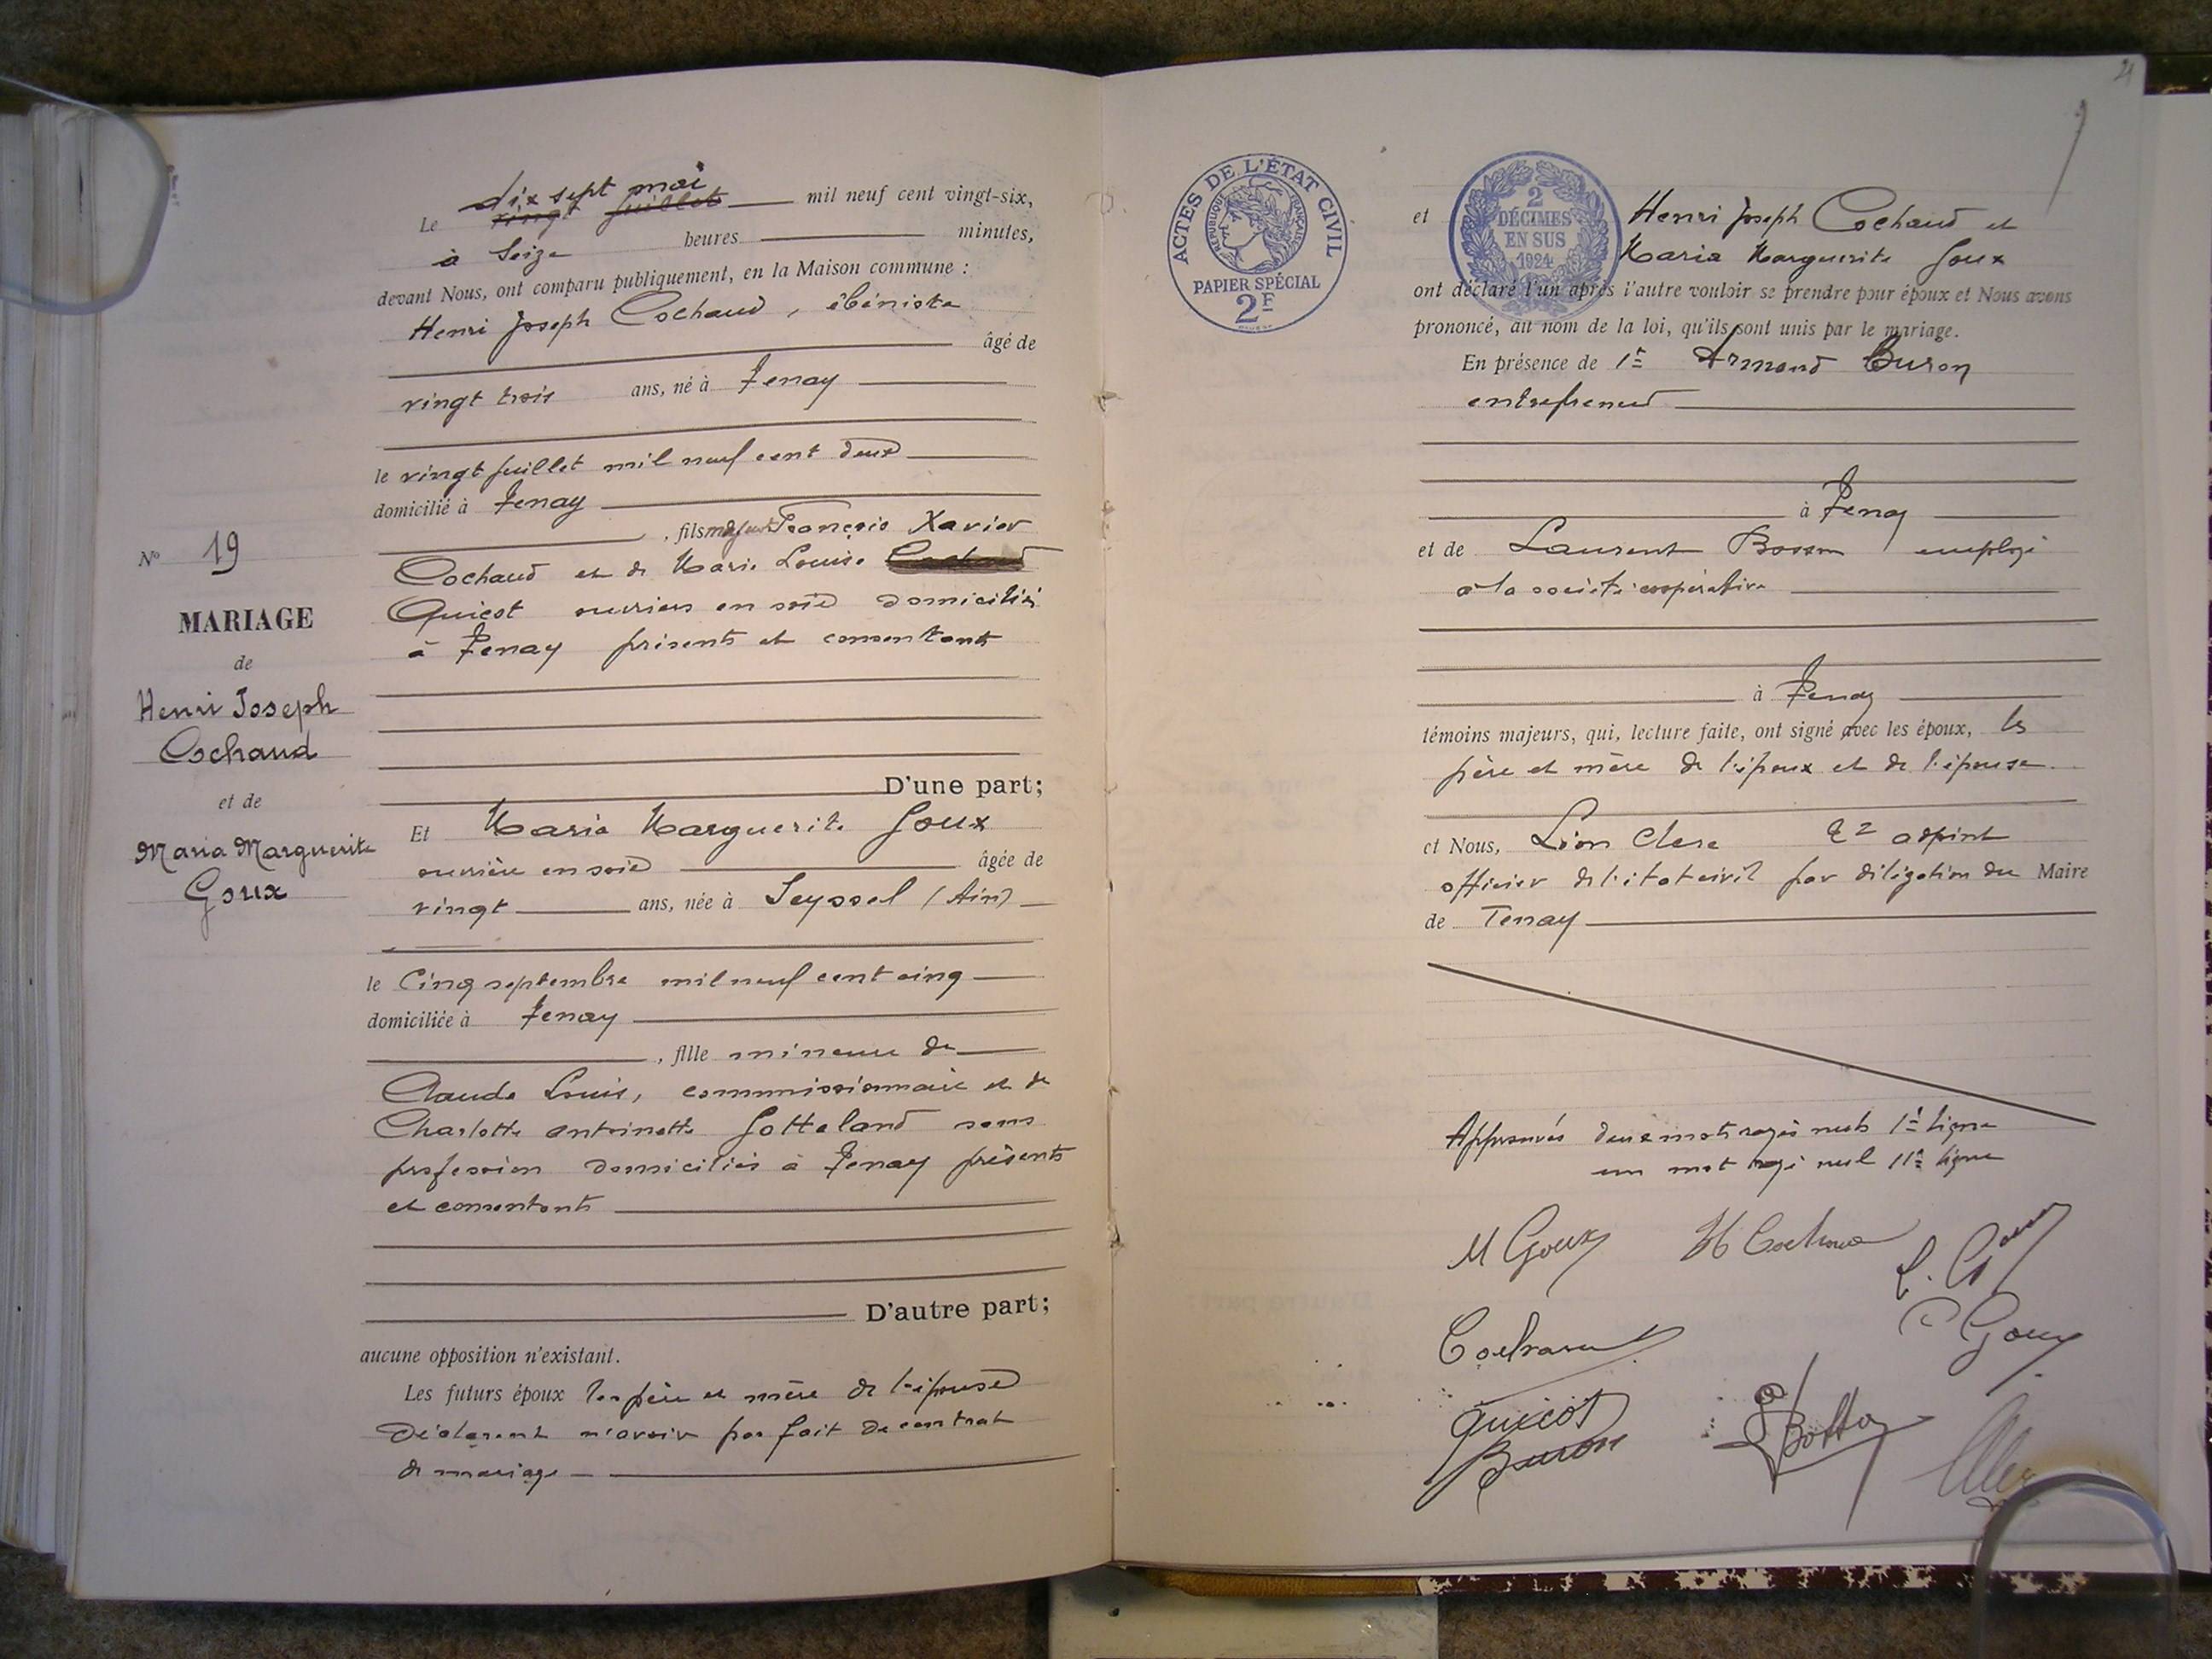 dix sept mai
Le vingt juillet mil neuf cent vingt-six,
à seize heures minutes,
devant Nous, ont comparu publiquement, en la Maison commune :
Henri Joseph Cochaud, ébéniste
âgé de
vingt trois ans, né à Tenay
le vingt juillet mil neuf cent deux
domicilié à Tenay
, fils majeur François Xavier
Cochaud et de Marie Louise
Quicot ouvriers en soie domiciliés
à Tenay présents et consentants
D'une part;
Et Maria Marguerite Goux
ouvrière en soie âgée de
vingt ans, née à Seyssel (Ain)
le Cinq septembre mil neuf cent cinq
domiciliée à Tenay
, fille mineure de
Claude Louis, commissionnaire et de
Charlotte antoinette Gotteland sans
profession domiciliés à Tenay présents
et consentants
D'autre part;
aucune opposition n'existant.
Les futurs époux les père et mère de l'épouse
Déclarent n'avoir pas fait de contrat
de mariage
No 19
MARIAGE
de
Henri Joseph
Cochaud
et de
Maria Marguerite
Goux
ACTES DE L'ÉTAT CIVIL
RÉPUBLIQUE FRANÇAISE
PAPIER SPÉCIAL
2F
2
DÉCIMES
EN SUS
1924
21
et Henri Joseph Cochaud et
Maria Marguerite Goux
ont déclaré l'un après l'autre vouloir se prendre pour époux et Nous avons
prononcé, au nom de la loi, qu'ils sont unis par le mariage.
En présence de 1º Armand Buron
entrepreneur
à Tenay
et de Laurent employé
à la société coopérative
à Tenay
témoins majeurs, qui, lecture faite, ont signé avec les époux, les
père et mère de l'époux et de l'épouse
et Nous, Léon Clerc 2e adjoint
officier de l'état civil par délégation du Maire
de Tenay
Approuvés deux mots rayés nuls 1e ligne
un mot rayé nul 11e ligne
M Goux H Cochaud
Cochaud C Goux
Quicot
Buron